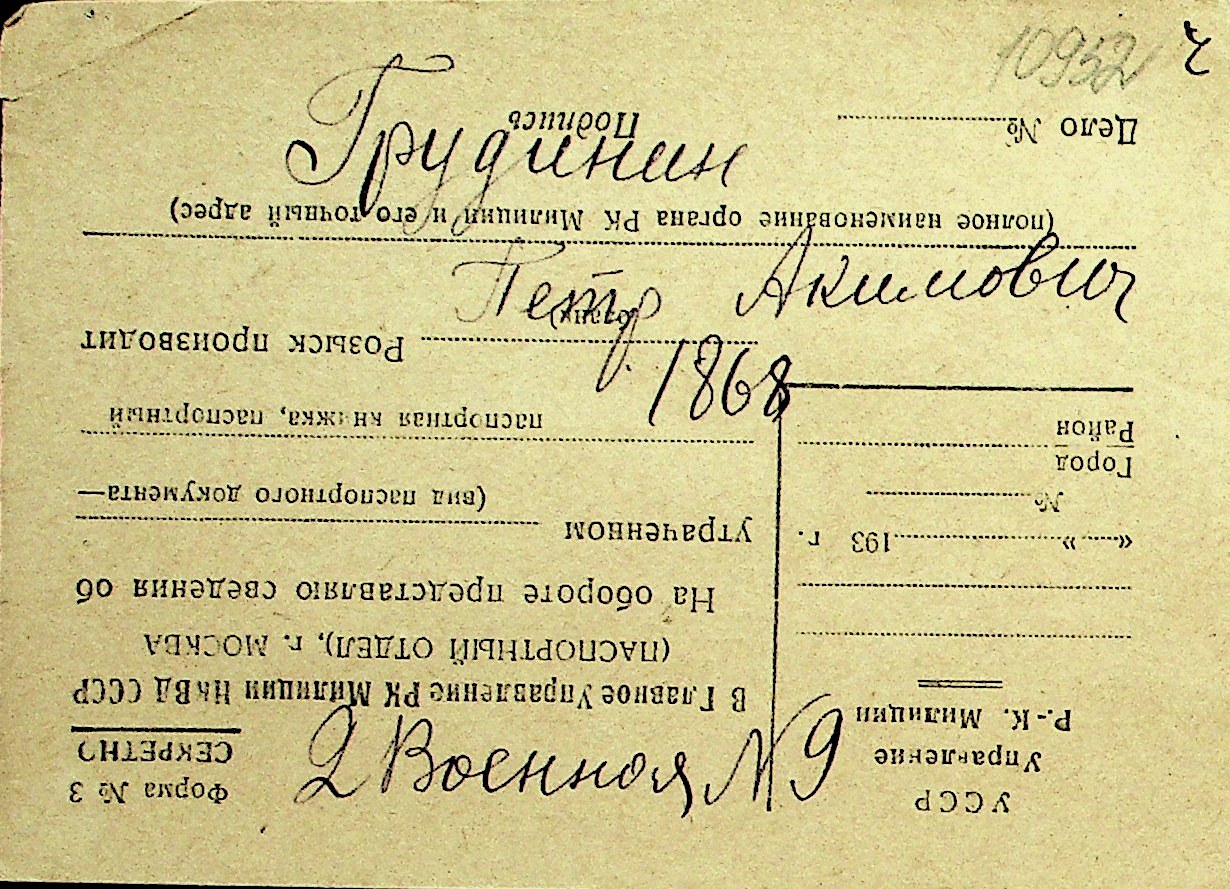 10932
Грудинин
Петр Акимович
1868
2 Военная N 9
УССР
Управление
Р.-К. Милиции
« » 193 г.
№
Город
Район
Форма № 3
СЕКРЕТНО
В Главное Управление РК Милиции НКВД СССР
(ПАСПОРТНЫЙ ОТДЕЛ), г. МОСКВА
На обороте представляю сведения об
утраченном
(вид паспортного документа—
паспортная книжка, паспортный
бланк)
Розыск производит
(полное наименование органа РК Милиции и его точный адрес)
Дело №
Подпись